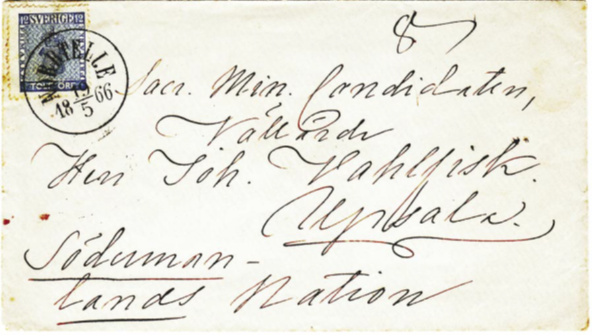 8
12 SVERIGE 12
TOLF ÖRE
NORRTELJE
12
18 5 66
Sacr. Min. Candidaten,
Vällärde
Herr Joh. Wahlfisk.
Upsala.
Söderman-
lands Nation